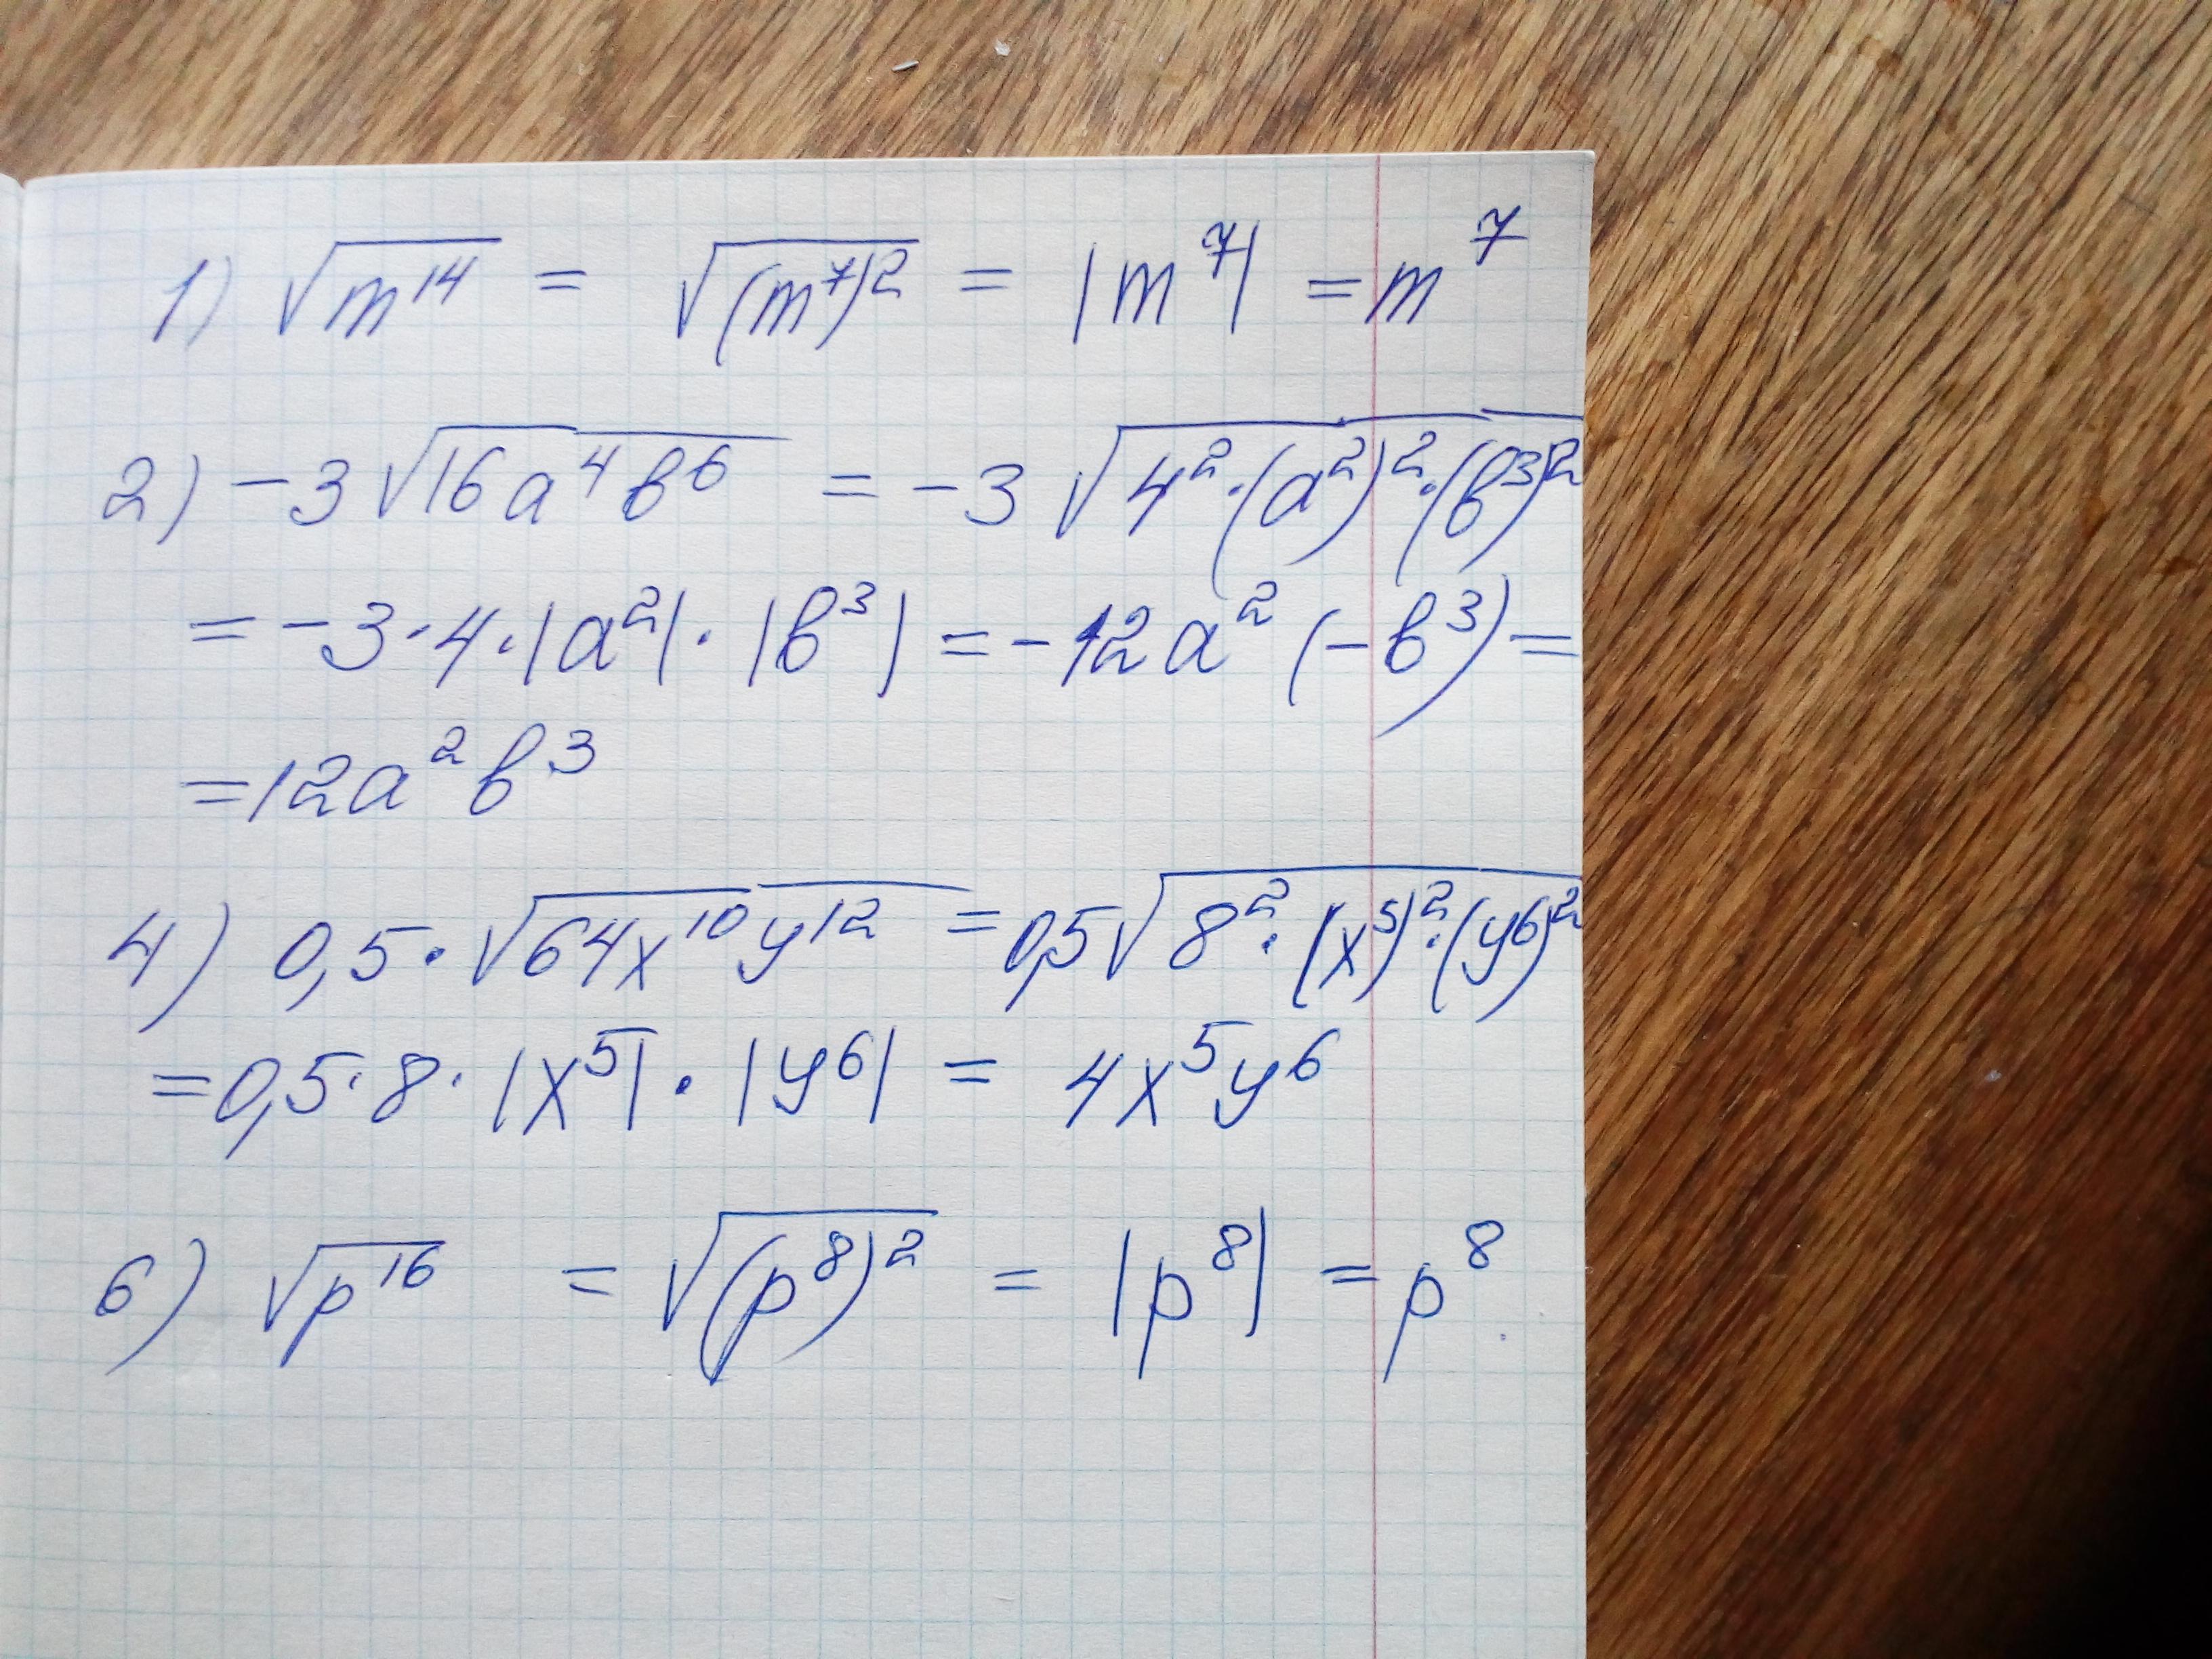 1) √m¹⁴ = √(m⁷)² = |m⁷| = m⁷
2) -3√16a⁴b⁶ = -3√4²·(a²)²·(b³)²
= -3·4·|a²|·|b³| = -12a²(-b³) =
= 12a²b³
4) 0,5·√64x¹⁰y¹² = 0,5√8²·(x⁵)²·(y⁶)²
= 0,5·8·|x⁵|·|y⁶| = 4x⁵y⁶
6) √p¹⁶ = √(p⁸)² = |p⁸| = p⁸.